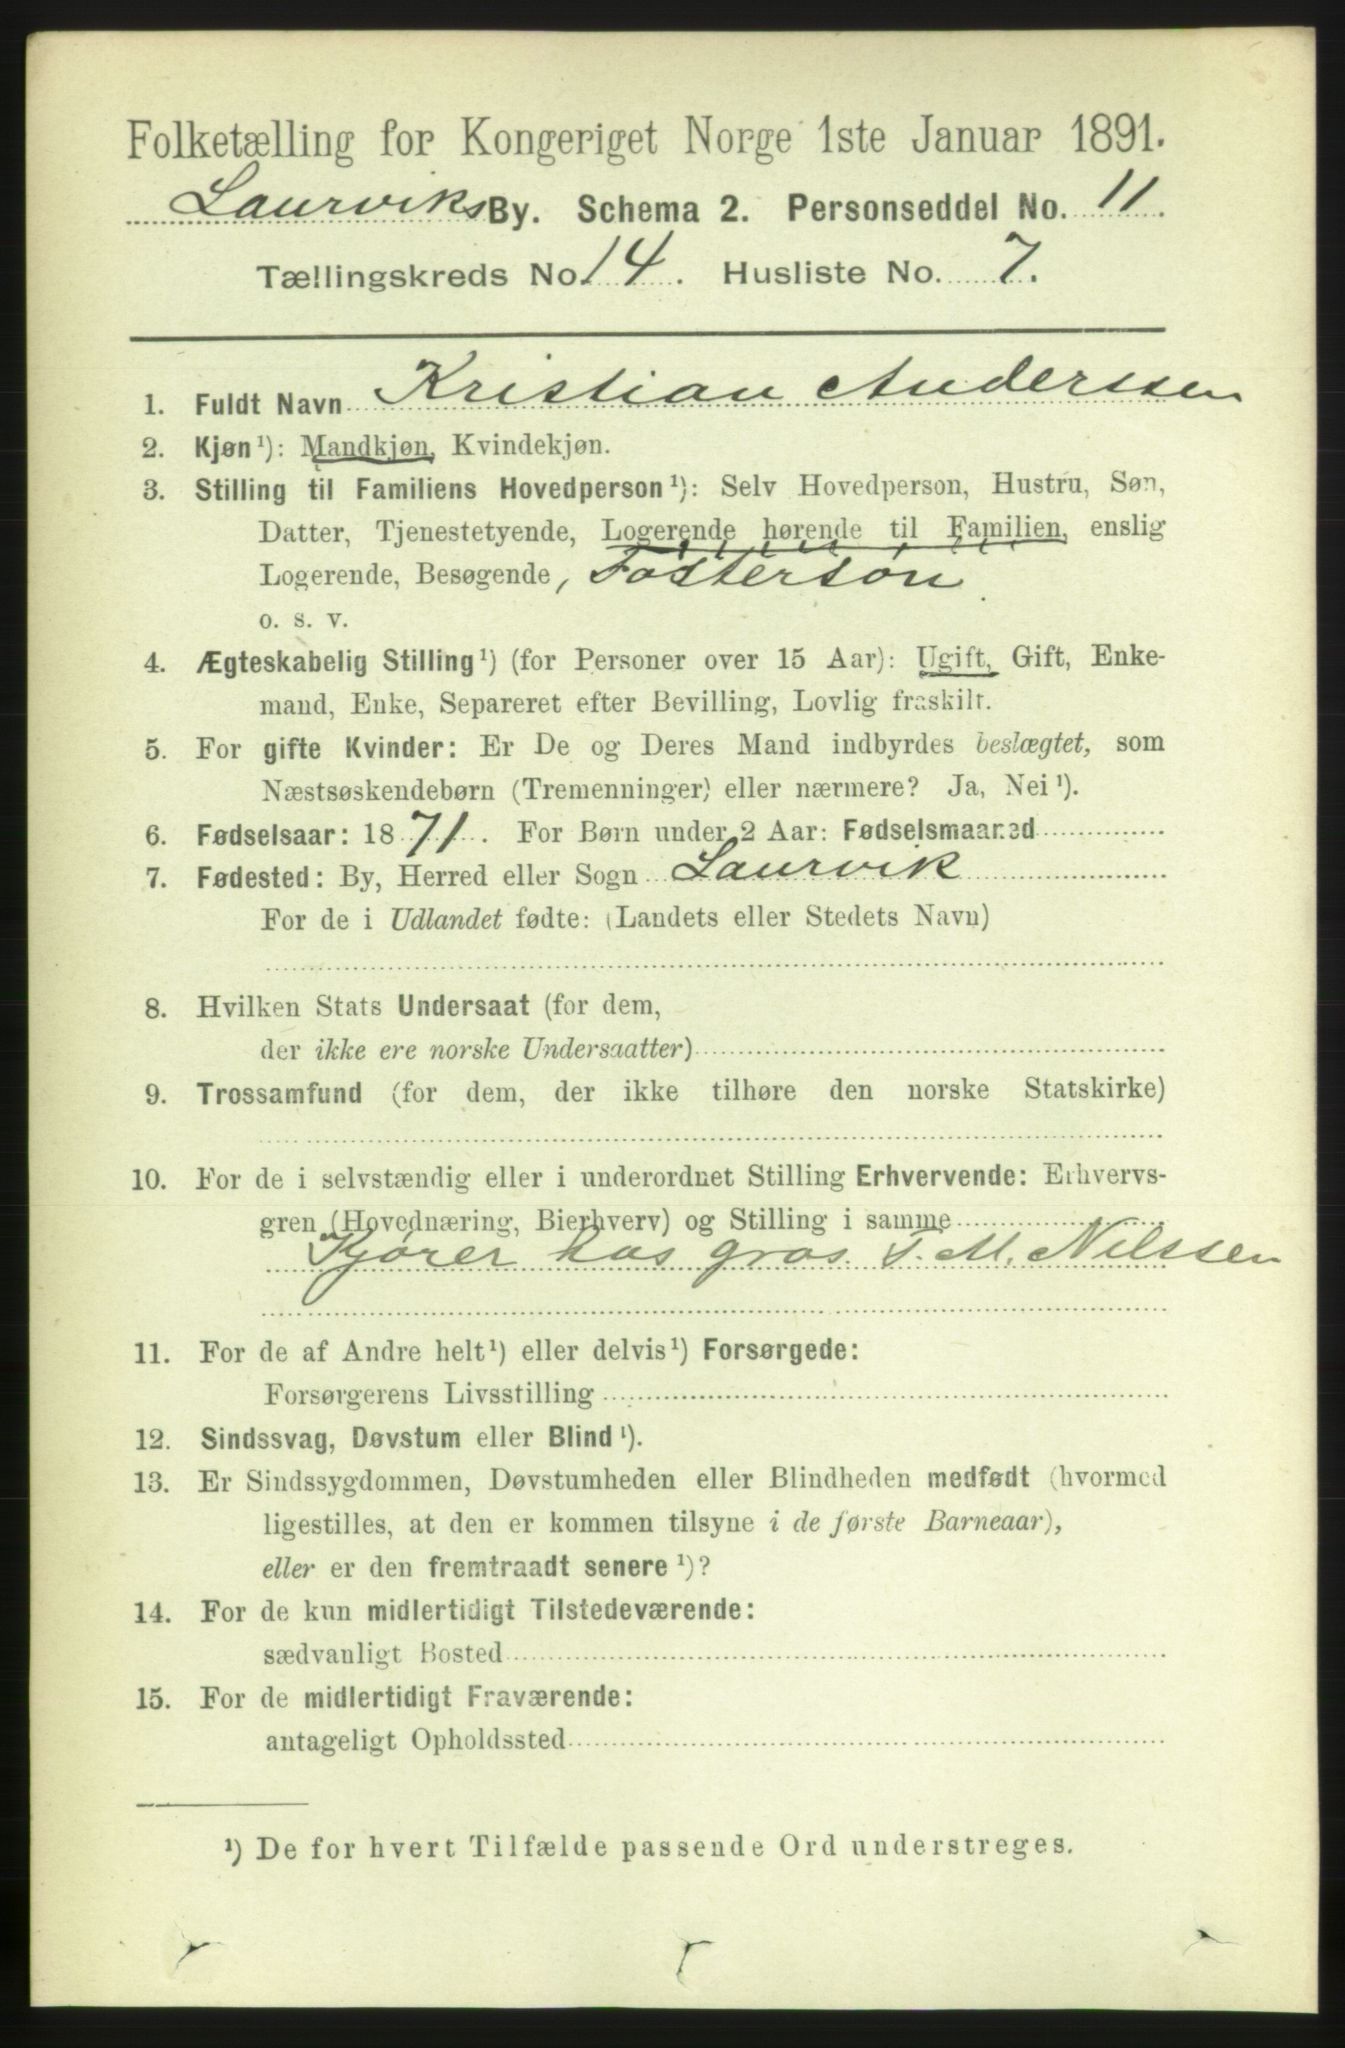 Folketælling for Kongeriget Norge 1ste Januar 1891.
Laurviks By. Schema 2. Personseddel No. 11.
Tællingskreds No. 14. Husliste No. 7.
1. Fuldt Navn Kristian Anderssen
2. Kjøn¹): Mandkjøn, Kvindekjøn.
3. Stilling til Familiens Hovedperson¹): Selv Hovedperson, Hustru, Søn,
Datter, Tjenestetyende, Logerende hørende til Familien, enslig
Logerende, Besøgende, Fostersøn.
o. s. v.
4. Ægteskabelig Stilling¹) (for Personer over 15 Aar): Ugift, Gift, Enke-
mand, Enke, Separeret efter Bevilling, Lovlig fraskilt.
5. For gifte Kvinder: Er De og Deres Mand indbyrdes beslægtet, som
Næstsøskendebørn (Tremenninger) eller nærmere? Ja, Nei¹).
6. Fødselsaar: 1871. For Børn under 2 Aar: Fødselsmaaned
7. Fødested: By, Herred eller Sogn Laurvik
For de i Udlandet fødte: (Landets eller Stedets Navn)
8. Hvilken Stats Undersaat (for dem,
der ikke ere norske Undersaatter)
9. Trossamfund (for dem, der ikke tilhøre den norske Statskirke)
10. For de i selvstændig eller i underordnet Stilling Erhvervende: Erhvervs-
gren (Hovednæring, Bierhverv) og Stilling i samme
Kjører hos gros. T. M. Nilssen
11. For de af Andre helt¹) eller delvis¹) Forsørgede:
Forsørgerens Livsstilling
12. Sindssvag, Døvstum eller Blind¹).
13. Er Sindssygdommen, Døvstumheden eller Blindheden medfødt (hvormed
ligestilles, at den er kommen tilsyne i de første Barneaar),
eller er den fremtraadt senere¹)?
14. For de kun midlertidigt Tilstedeværende:
sædvanligt Bosted
15. For de midlertidigt Fraværende:
antageligt Opholdssted
¹) De for hvert Tilfælde passende Ord understreges.